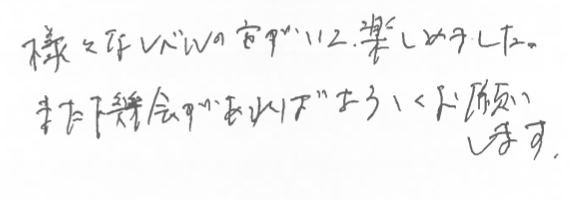 様々なレベルの がいて楽しめました。
また機会があればよろしくお願い
します.